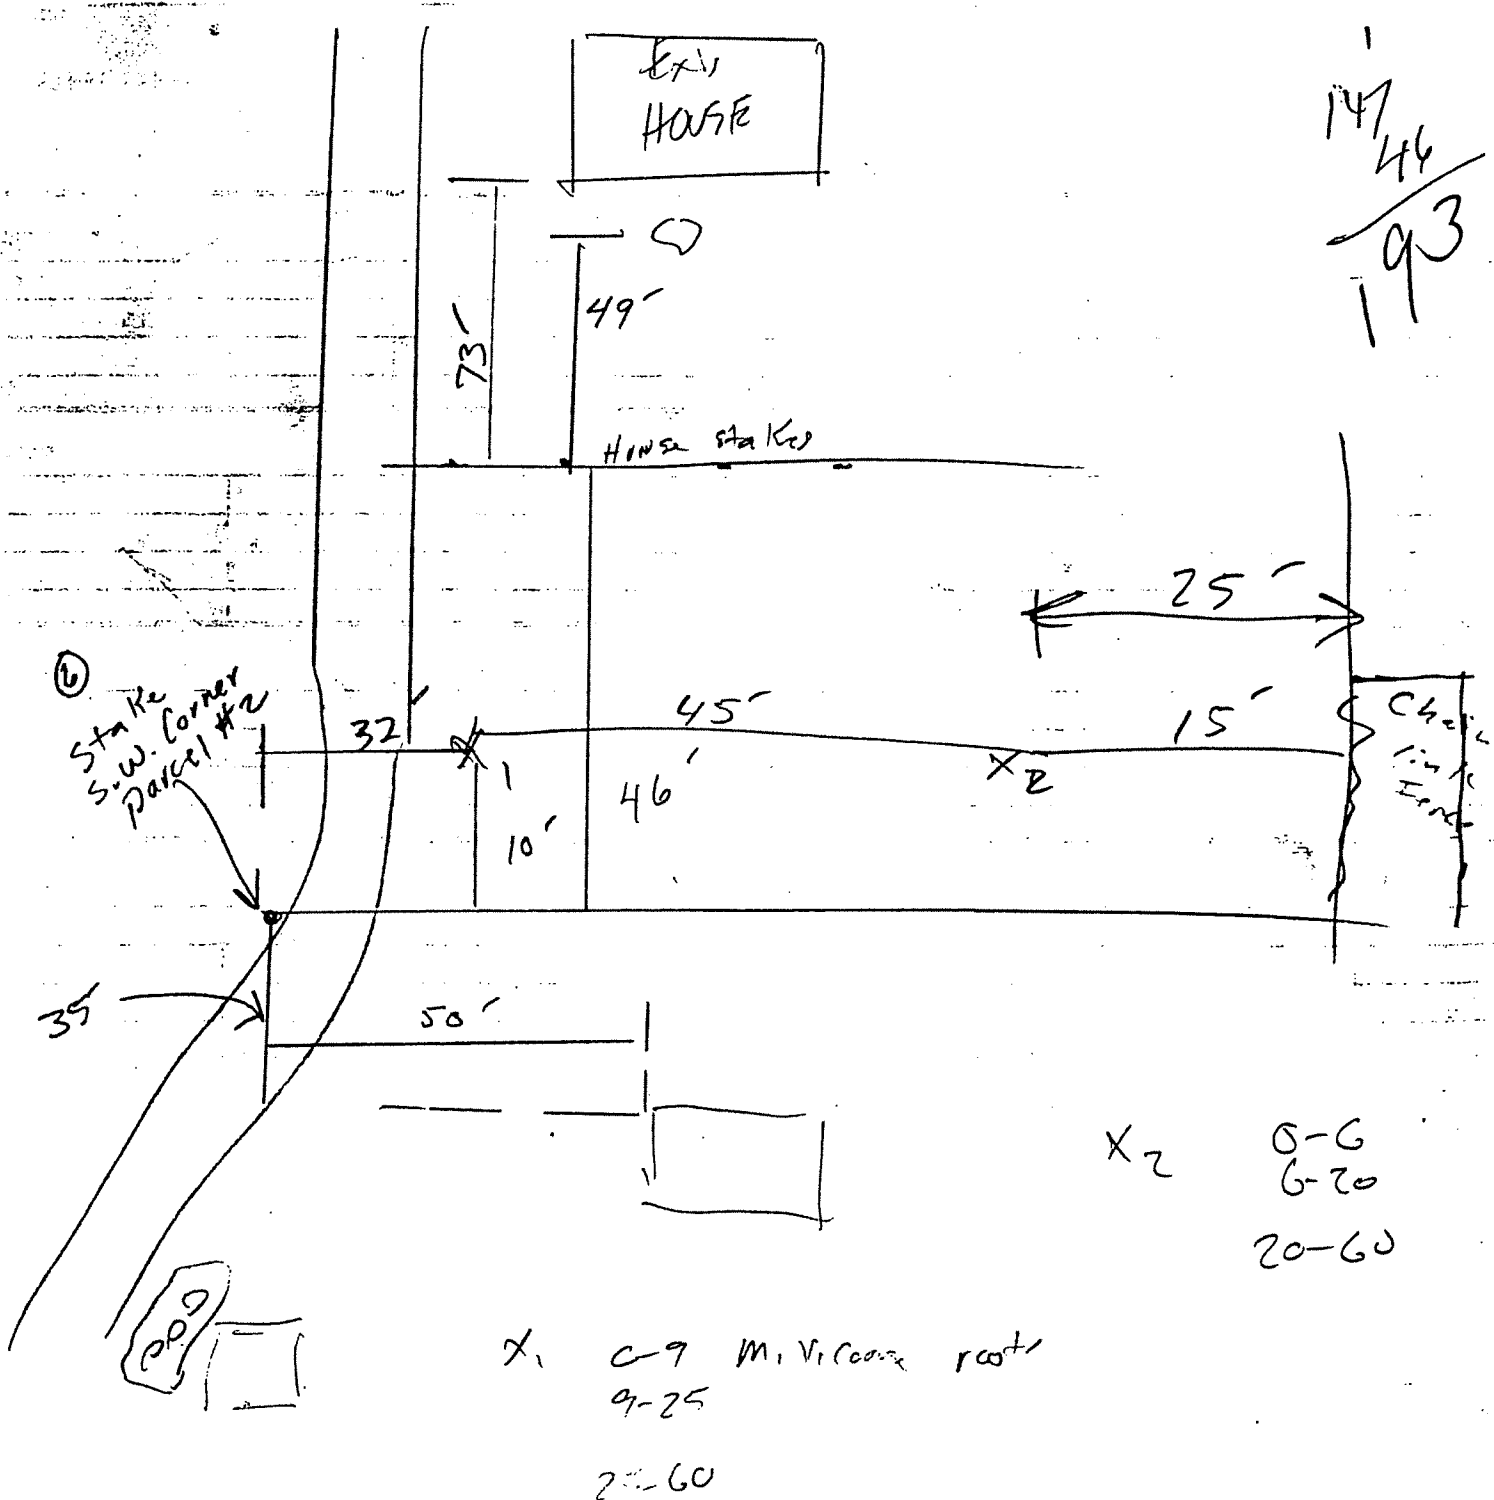 Exis
HOUSE
147
46
193
49'
73'
House stakes
25'
6
Stake
S.W. Corner
Parcel #2
32
45'
15'
Chain
link
Fence
X
1
X2
46'
10'
35
50'
X2
0-6
6-20
20-60
X1
0-9
roots
9-25
-60